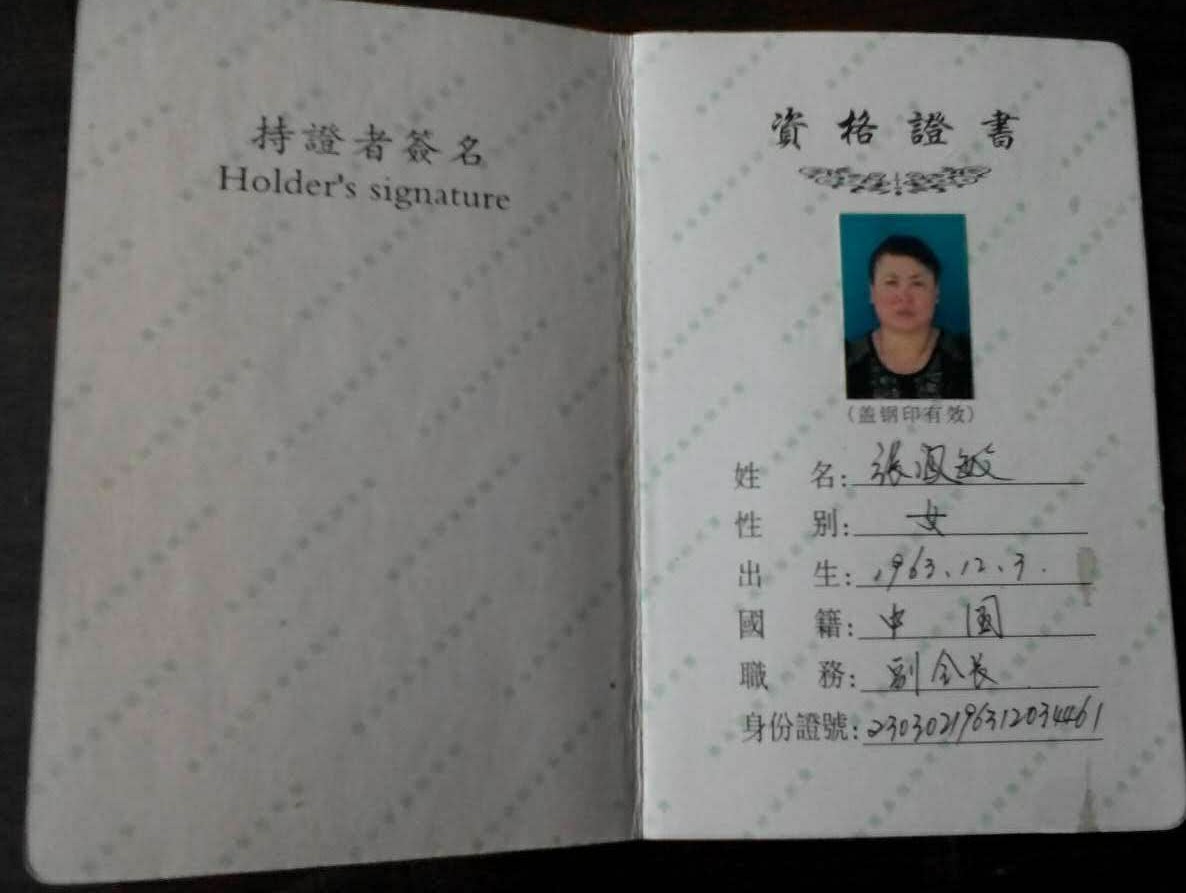 持證者簽名
Holder's signature
資格證書
（盖钢印有效）
姓 名：張凤敏
性 别：女
出 生：1963.12.3.
國 籍：中 国
職 務：副会长
身份證號：230302196312034461